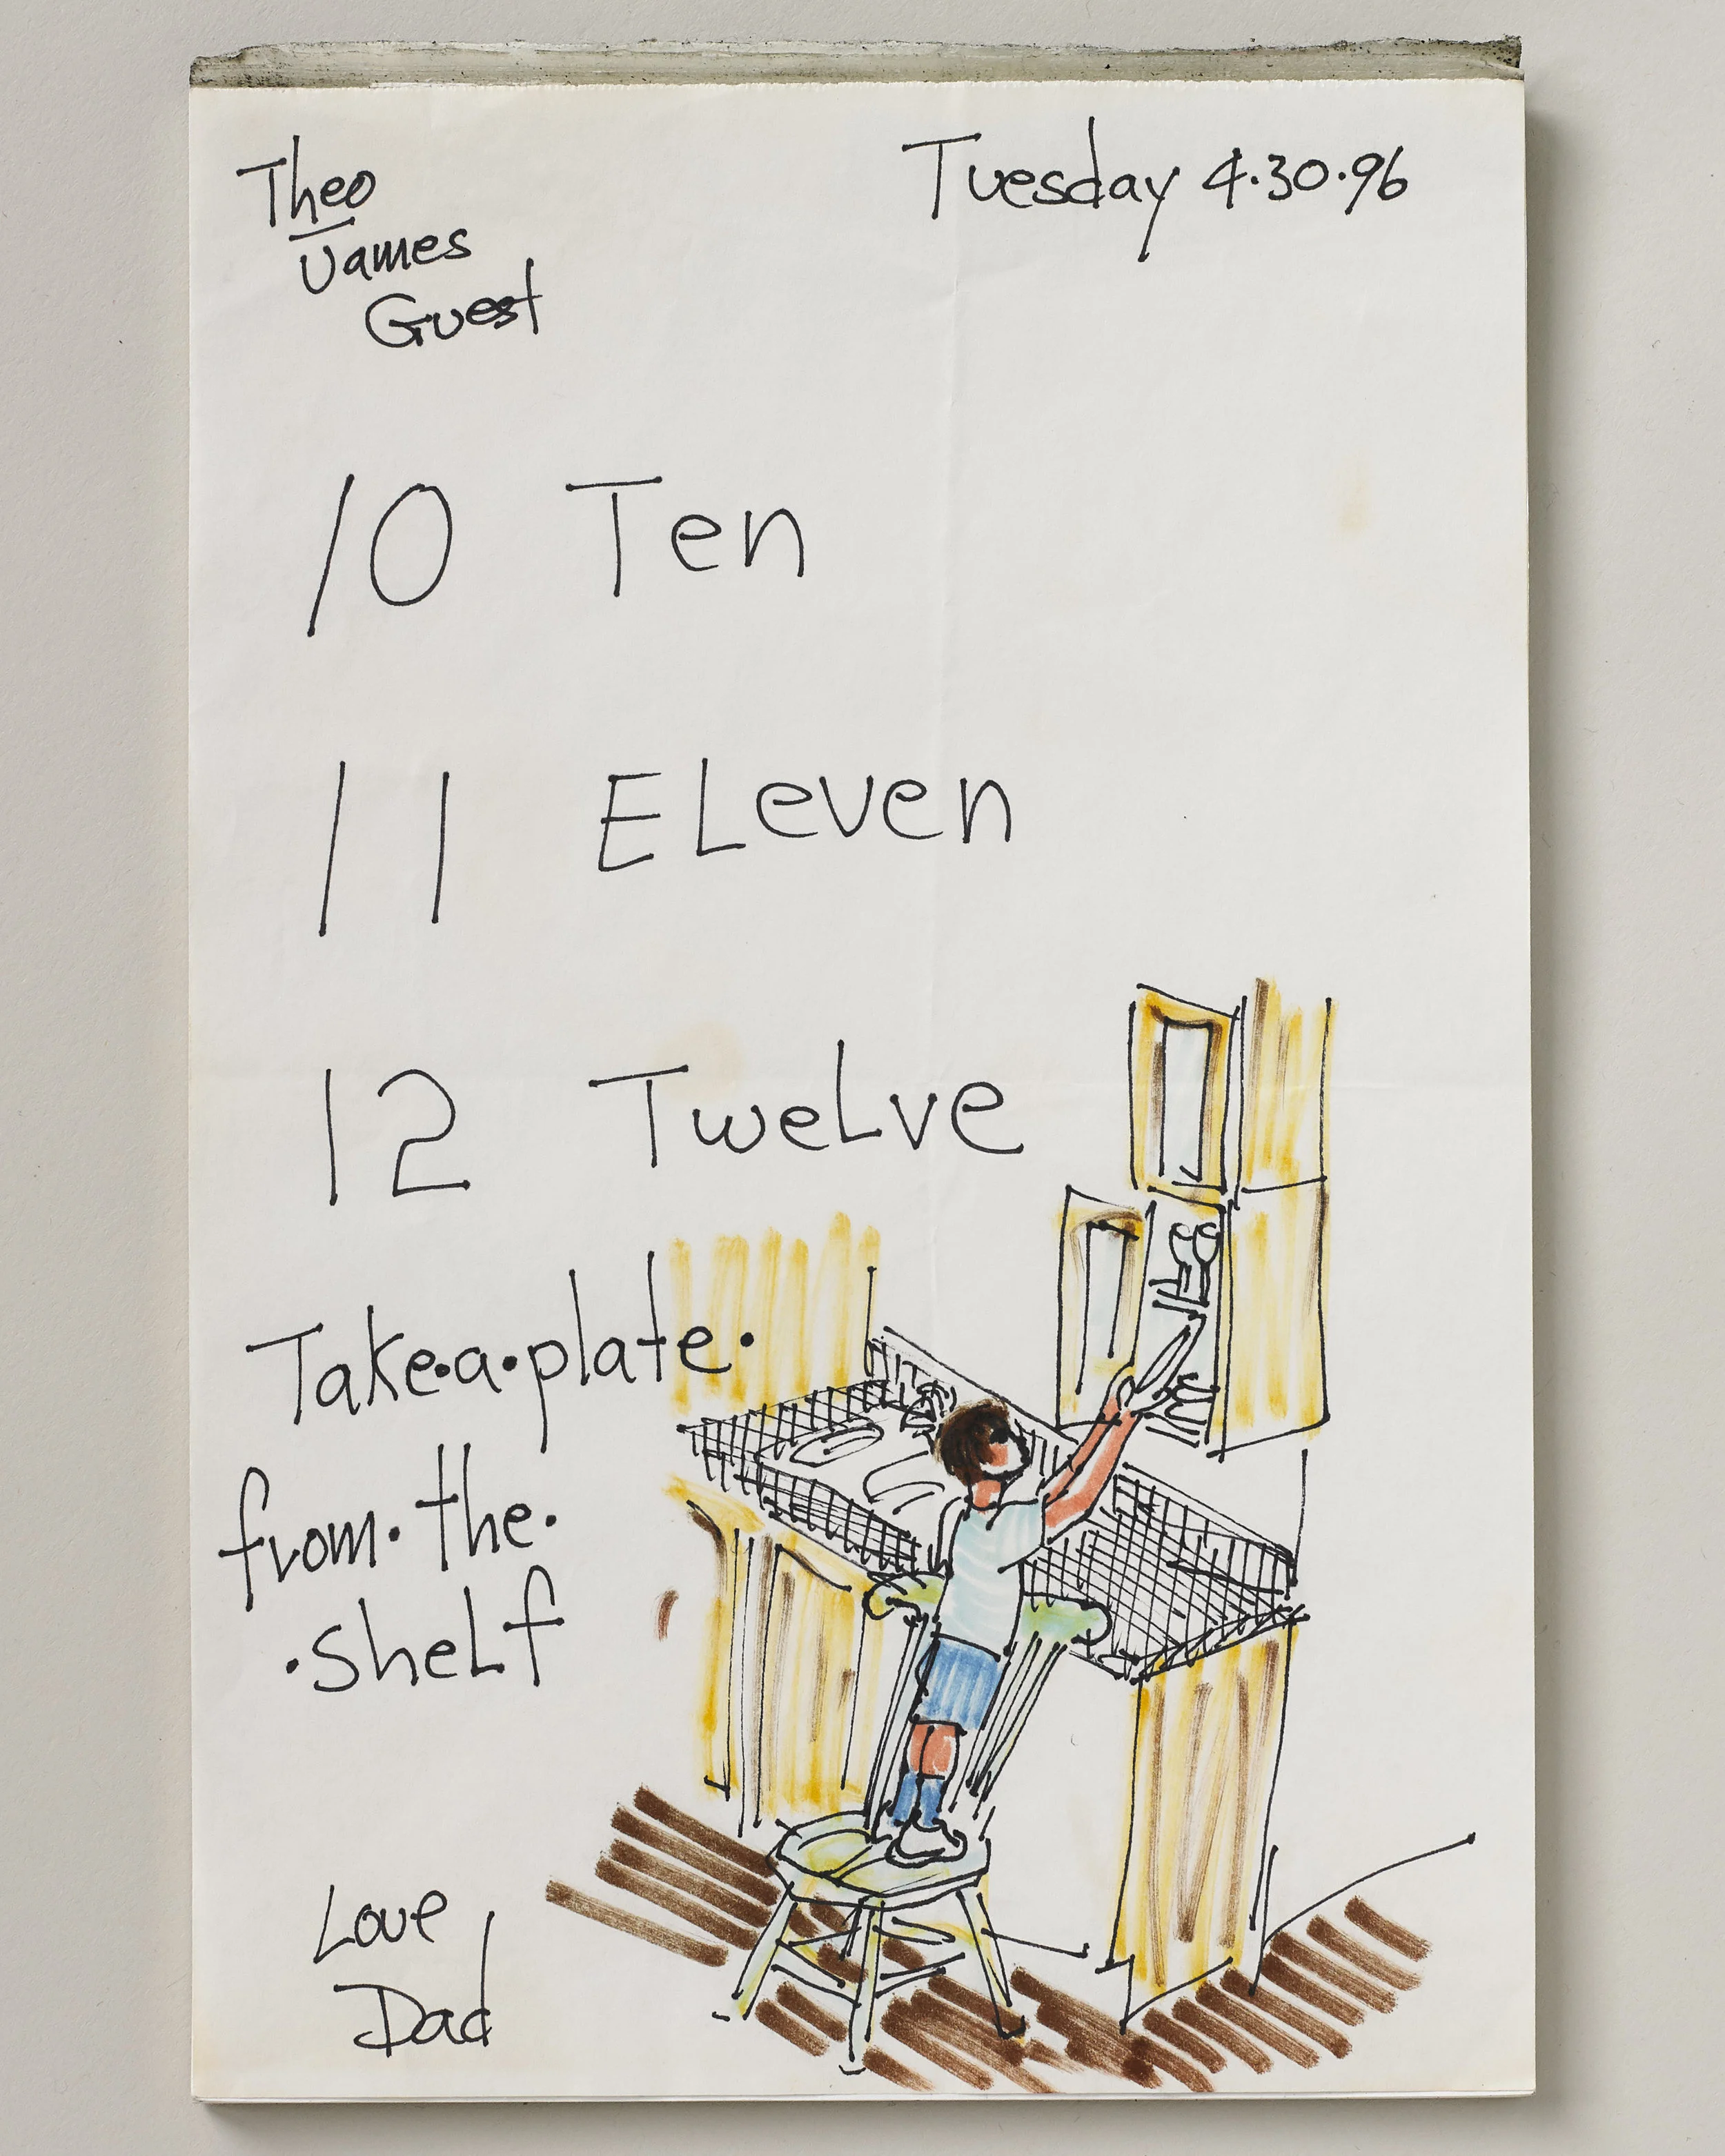 Theo
James
Guest
Tuesday 4·30·96
10 Ten
11 ELeven
12 TweLve
Take·a·plate·
from·the·
·sheLf
Love
Dad